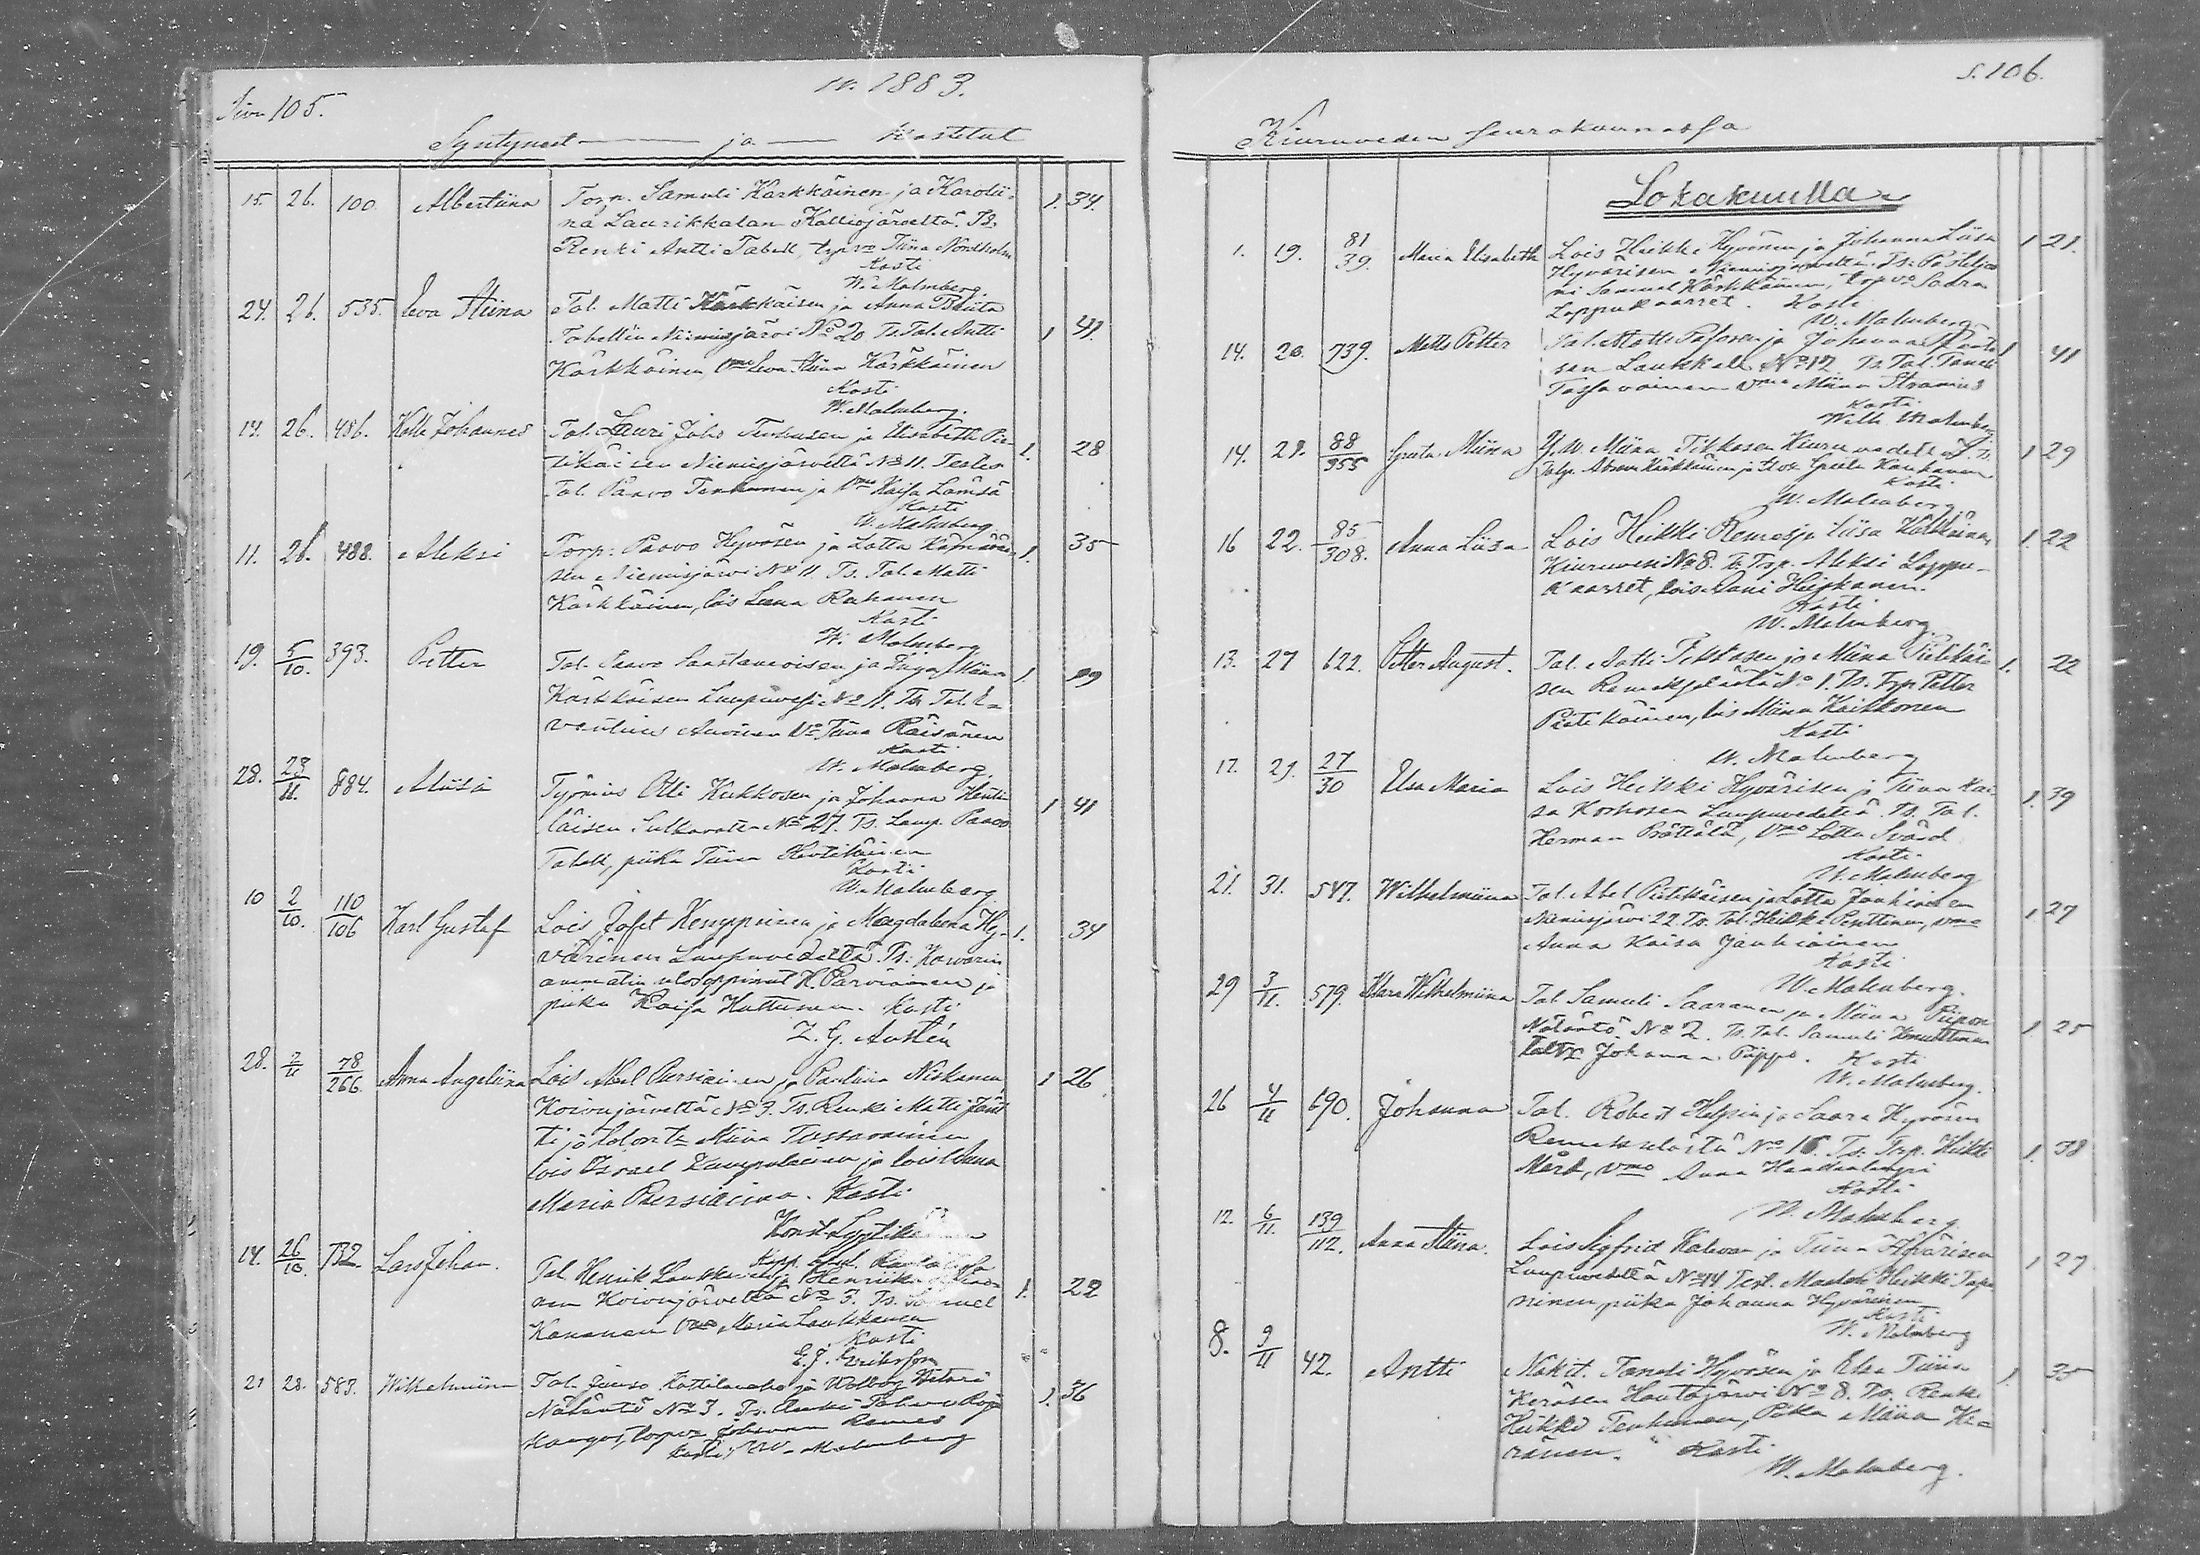 v. 1883.
Sivu 105.
Syntyneet ja Kastetut
15. 26. 100. Albertiina Torp. Samuli Kärkkäinen ja Karolii- 1. 34.
na Laurikkalan Kalliojärveltä. Ts.
Renki Antti Tabell, trp vo Tiina Nordholm
Kasti
W. Malmberg.
24. 26. 535. Eva Stiina Tal. Matti Kärkkäisen ja Anna Briita 1 41.
Tabellin Niemisjärvi No 20 Ts. Tal. Antti
Kärkkäinen, vmo Eva Stiina Kärkkäinen
Kasti
W. Malmberg.
14. 26. 486. Kalle Johannes Tal. Lauri Juho Tenhusen ja Elisabeth Pie- 1. 28
tikäisen Niemisjärveltä No 11. Testes
Tal. Paavo Tenhunen ja vmo Kaisa Lämsä
Kasti
W. Malmberg.
11. 26. 488. Aleksi Torp: Paavo Hyvösen ja Lotta 1. 35
sen Niemisjärvi No 11. Ts. Tal. Matti
Kärkkäinen, lois Leena Rahunen
Kasti
W. Malmberg
19. 5/10. 393. Petter Tal. Paavo Saastamoisen ja Miina 1. 29
Kärkkäisen Luupuvesi No 11. Ts. Tal. E-
ventius vo Tiina Räisänen
Kasti
W. Malmberg.
28. 23/11. 884. Miisa Työmies Olli Kukkosen ja Johanna 1 41
läisen Sulkavata No 27. Ts. Lamp. Paavo
Tabell, piika Tiina
Kasti
W. Malmberg
10 2/10. 110/106 Karl Gustaf Lois Jafet Kemppinen ja Magdalena Hy- 1. 34
värinen Luupuvedeltä. Ts: Kavarin
ammatin ulosoppinut H. Parviainen ja
piika Kaisa Huttunen. Kasti
Z. G. Austén
28. 2/11 78/266. Anna Angeliina Lois Abel Pursiainen ja Pauliina Niskanen, 1 26
Koivujärveltä No 3. Ts. Renki Matti Jänt
ti ja Miina Tassavainen
lois Israel Kumpulainen ja lois Anna
Maria Pursiainen. Kasti
Konst.
14. 26/10. 732. Lars Johan. Tal. Henrik Laukkanen ja Henriika 1. 22
nen Koivujärveltä No 3. Ts. Samuel
Kananen vmo Maria Laukkanen
Kasti
E. J. Eriksson
21 28. 583. Wilhelmiina Tal. Juuso Kattilakoski ja Wolborg 1. 36
Näläntö No 3. Ts. Renki
Johanna Remes
Kasti, W. Malmberg
S. 106.
Kiuruveden seurakunnassa
Lokakuulla
1. 19. 81/39. Maria Elisabeth Lois Heikki Hyvönen ja Johanna Liisa 1 21.
Hyvärisen Niemisjärveltä. Ts: Postiljoo
ni Samuel Kärkkäinen, trp vo Sadra
Loppukaarret. Kasti
W. Malmberg
14. 20. 739. Matts Petter Tal. Matti Pasosen ja Johanna 1 41
sen Laukkala No 17 Ts. Tal. Taneli
Tassavainen vmo Miina Stranius
Kasti
Wilh. Malmberg
14. 29. 88/355 Greta Miina Y. W. Miina Tikkasen Kiuruvedeltä 1 29
Talp. Abram Kärkkäinen, ja Greeta Kauhanen
Kasti
W. Malmberg
16 22. 85/308. Anna Liisa Lois Heikki Remes ja Liisa 1. 22
Kiuruvesi No 8. Ts. Trp. Aleksi Loppu-
kaarret, lois Anni Heiskanen.
Kasti
W. Malmberg
13. 27 622. Petter August. Tal. Antti Tikkasen ja Miina Pietikäi 1. 22
sen Remeskylästä No 1. Ts. Trp. Petter
Pietikäinen, lois Miina Kaikkonen
Kasti
W. Malmberg
17. 29. 27/30 Elsa Maria Lois Heikki Hyvärisen ja Tiina Kai- 1. 39
sa Korhosen Luupuvedeltä. Ts. Tal.
Herman Prättälä, vmo Lotta Svärd
Kasti
W. Malmberg
21. 31. 547. Wilhelmiina Tal. Abel Pietikäisen ja Lotta Jauhiainen 1 27
Niemisjärvi 22. Ts. Tal. Heikki Penttinen, vmo
Anna Kaisa Jauhiainen
Kasti
W. Malmberg.
29 3/11. 579. Klara Wilhelmiina Tal. Samuli Saaranen ja Miina Piipon 1 25
Näläntö No 2. Ts. Tal. Samuli Knuuttinen
Johanna Piippo. Kasti
W. Malmberg.
26 4/11 690. Johanna Tal. Robert Helpin ja Saara Hyvösen 1. 38
Remeskylästä No 16. Ts. Trp. Heikki
Mård, vmo Anna
Kasti
W. Malmberg.
12. 6/11. 139/112. Anna Stiina. Lois Sigfrid Kalevan ja Tiina Hyvärisen 1 27
Luupuvedeltä No 14 Test. Heikki Tapa
ninen, piika Johanna Hyvärinen
Kasti
W. Malmberg
8. 9/11 42. Antti Taneli Hyvösen ja Elsa Tiina 1 35
Keräsen Hautajärvi No 8. Ts. Renki
Heikki Tenhunen, Piika Miina Ke-
ränen. Kasti
W. Malmberg.